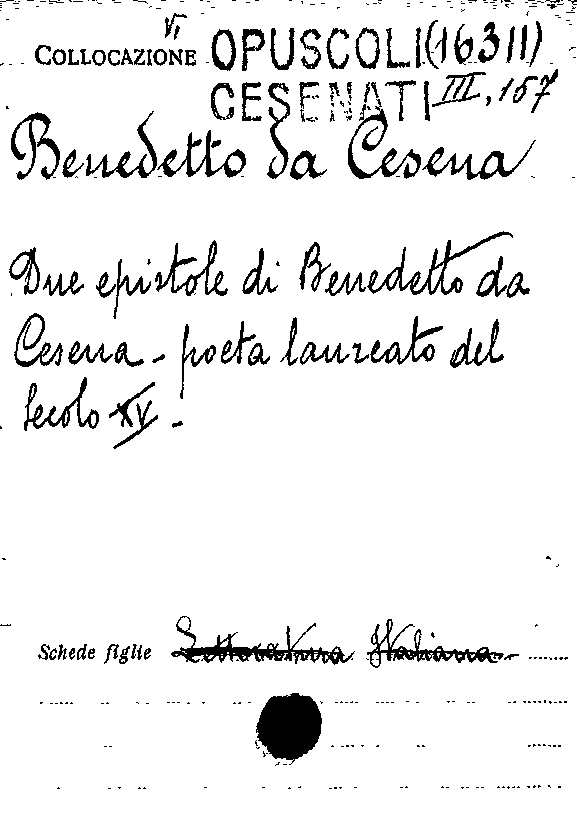 VI
COLLOCAZIONE OPUSCOLI (16311)
CESENATI III, 157
Benedetto da Cesena
Due epistole di Benedetto da
Cesena - poeta laureato del
secolo XV -
Schede figlie Letteratura Italiana